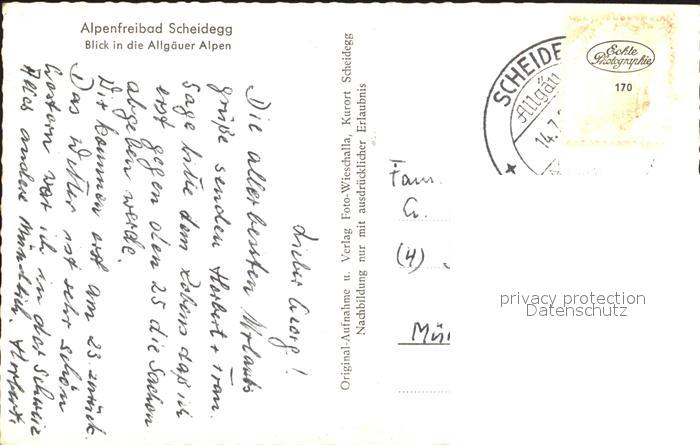 Alpenfreibad Scheidegg
Blick in die Allgäuer Alpen
Lieber Georg!
Die allerbesten Urlaubs
grüße senden Herbert + Frau.
Sage bitte dem Robens daß ich
erst gegen den 25 die Sachen
abgeben werde.
Wir kommen erst am 23. zurück.
Das Wetter ist sehr schön
Gestern war ich in der Schweiz
Alles andere mündlich Herbert
Original-Aufnahme u. Verlag Foto-Wieschalla, Kurort Scheidegg
Nachbildung nur mit ausdrücklicher Erlaubnis
SCHEIDE
Allgäu
14.7.
Echte
Photographie
170
Fam.
G.
(4)
Mün
privacy protection
Datenschutz